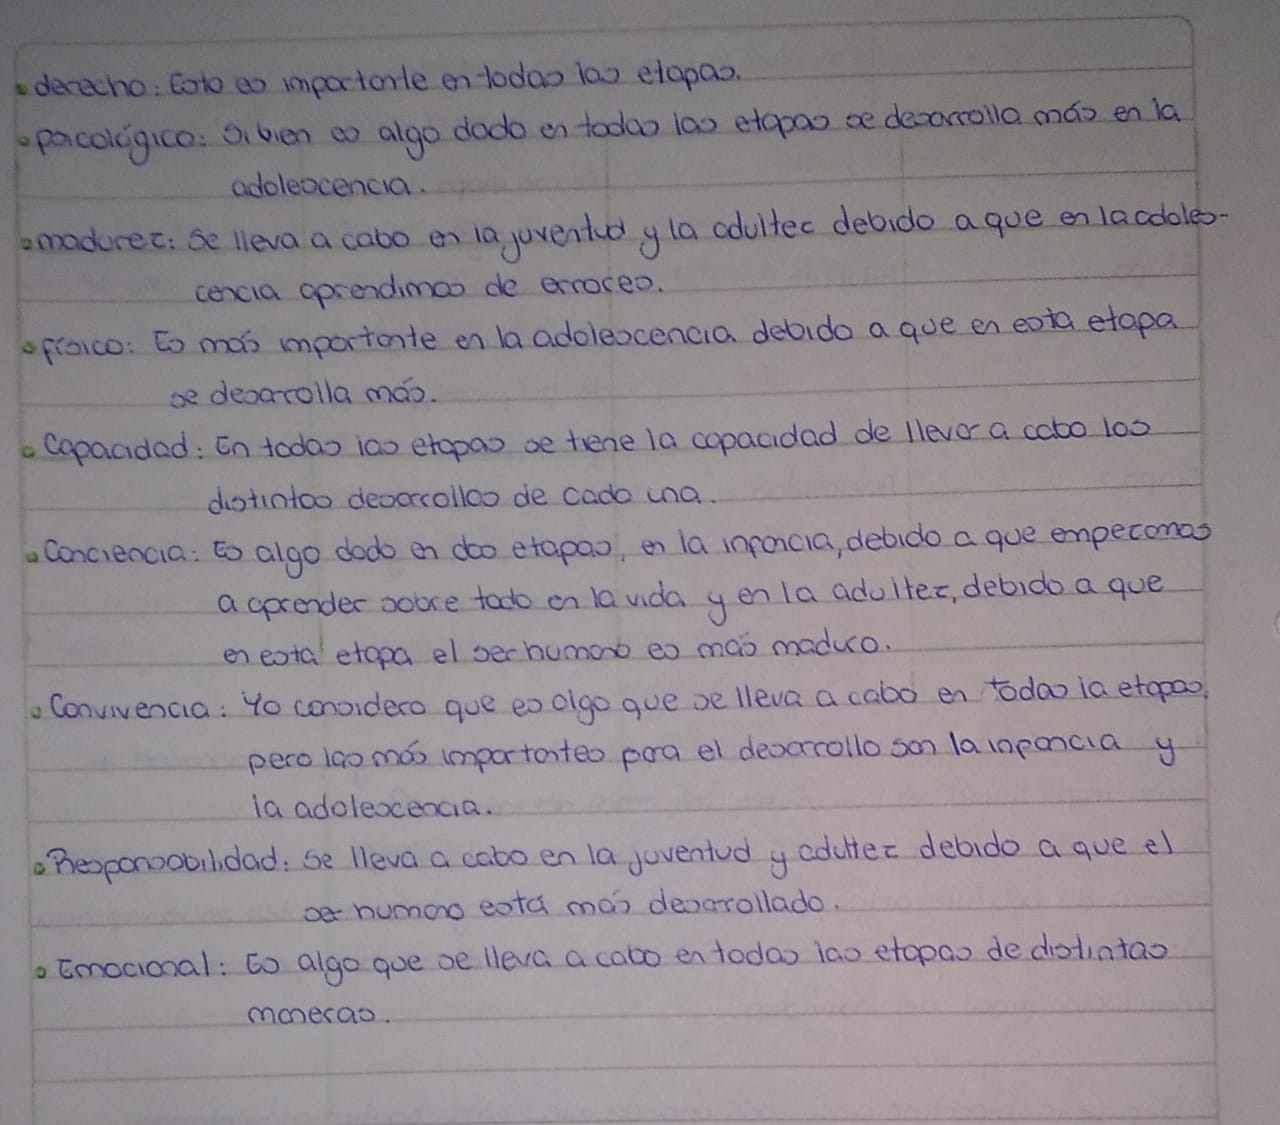 • derecho: Esto es importante en todas las etapas.
• psicológico: Si bien es algo dado en todas las etapas se desarrolla más en la
adolescencia.
• madurez: Se lleva a cabo en la juventud y la adultez debido a que en la adoles-
cencia aprendimos de errores.
• físico: Es más importante en la adolescencia debido a que en esta etapa
se desarrolla más.
• Capacidad: En todas las etapas se tiene la capacidad de llevar a cabo los
distintos desarrollos de cada una.
• Conciencia: Es algo dado en dos etapas, en la infancia, debido a que empezamos
a aprender sobre todo en la vida y en la adultez, debido a que
en esta etapa el ser humano es más maduro.
• Convivencia: Yo considero que es algo que se lleva a cabo en todas la etapas,
pero las más importantes para el desarrollo son la infancia y
la adolescencia.
• Responsabilidad: Se lleva a cabo en la juventud y adultez debido a que el
ser humano está más desarrollado.
• Emocional: Es algo que se lleva a cabo en todas las etapas de distintas
maneras.